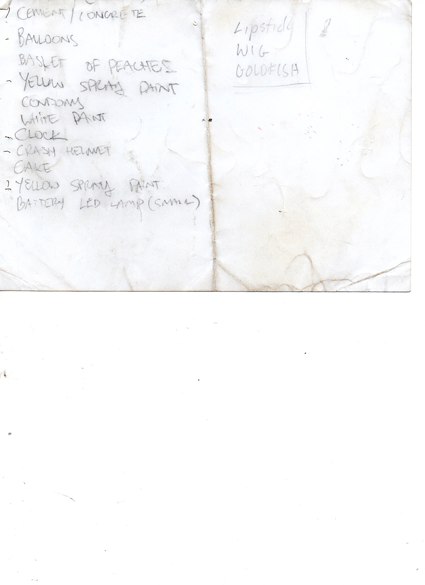 - CEMENT/CONCRETE
- BALLOONS
BASKET OF PEACHES
- YELLOW SPRAY PAINT
CONDOMS
WHITE PAINT
- CLOCK
- CRASH HELMET
CAKE
2 YELLOW SPRAY PAINT
BATTERY LED LAMP (SMALL)
Lipstick
WIG
GOLDFISH